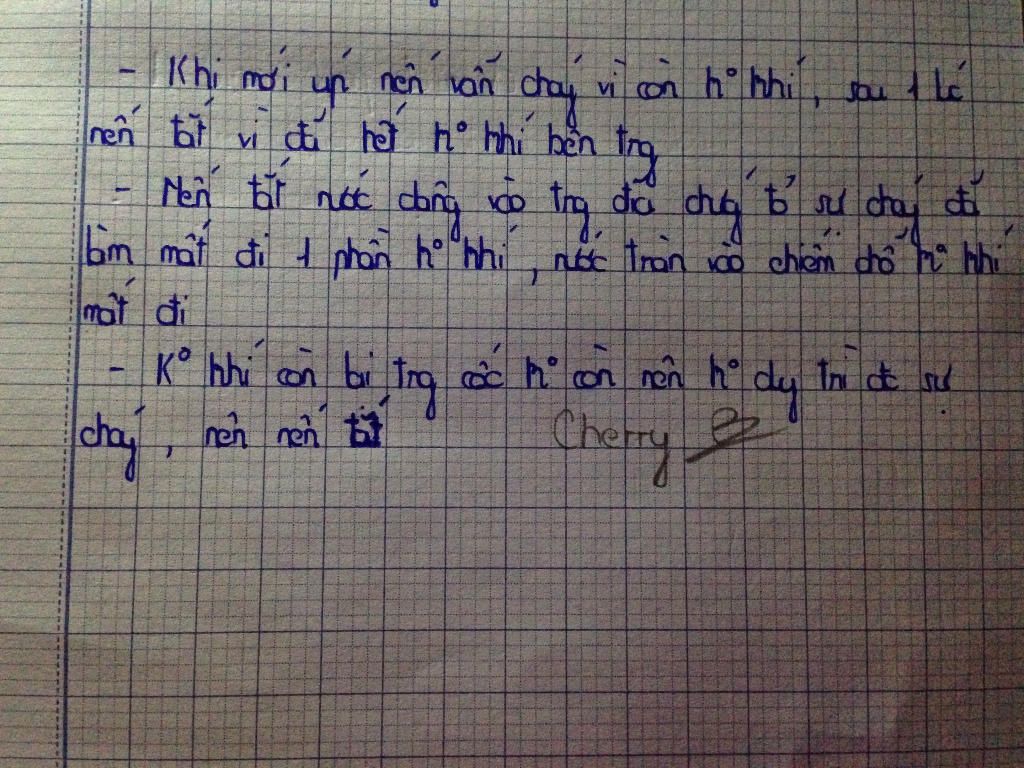 - Khi mới úp nến vẫn cháy vì còn kº khí, sau 1 lć
nến tắt vì đã hết kº khí bên trg
- Nến tắt nước dâng vào trg đĩa chứg tỏ sự cháy đã
làm mất đi 1 phần kº khí, nước tràn vào chiếm chỗ kº khí
mất đi
- Kº khí còn lại trg cốc kº còn nên kº duy trì đc sự
cháy, nên nến tắt Cherry